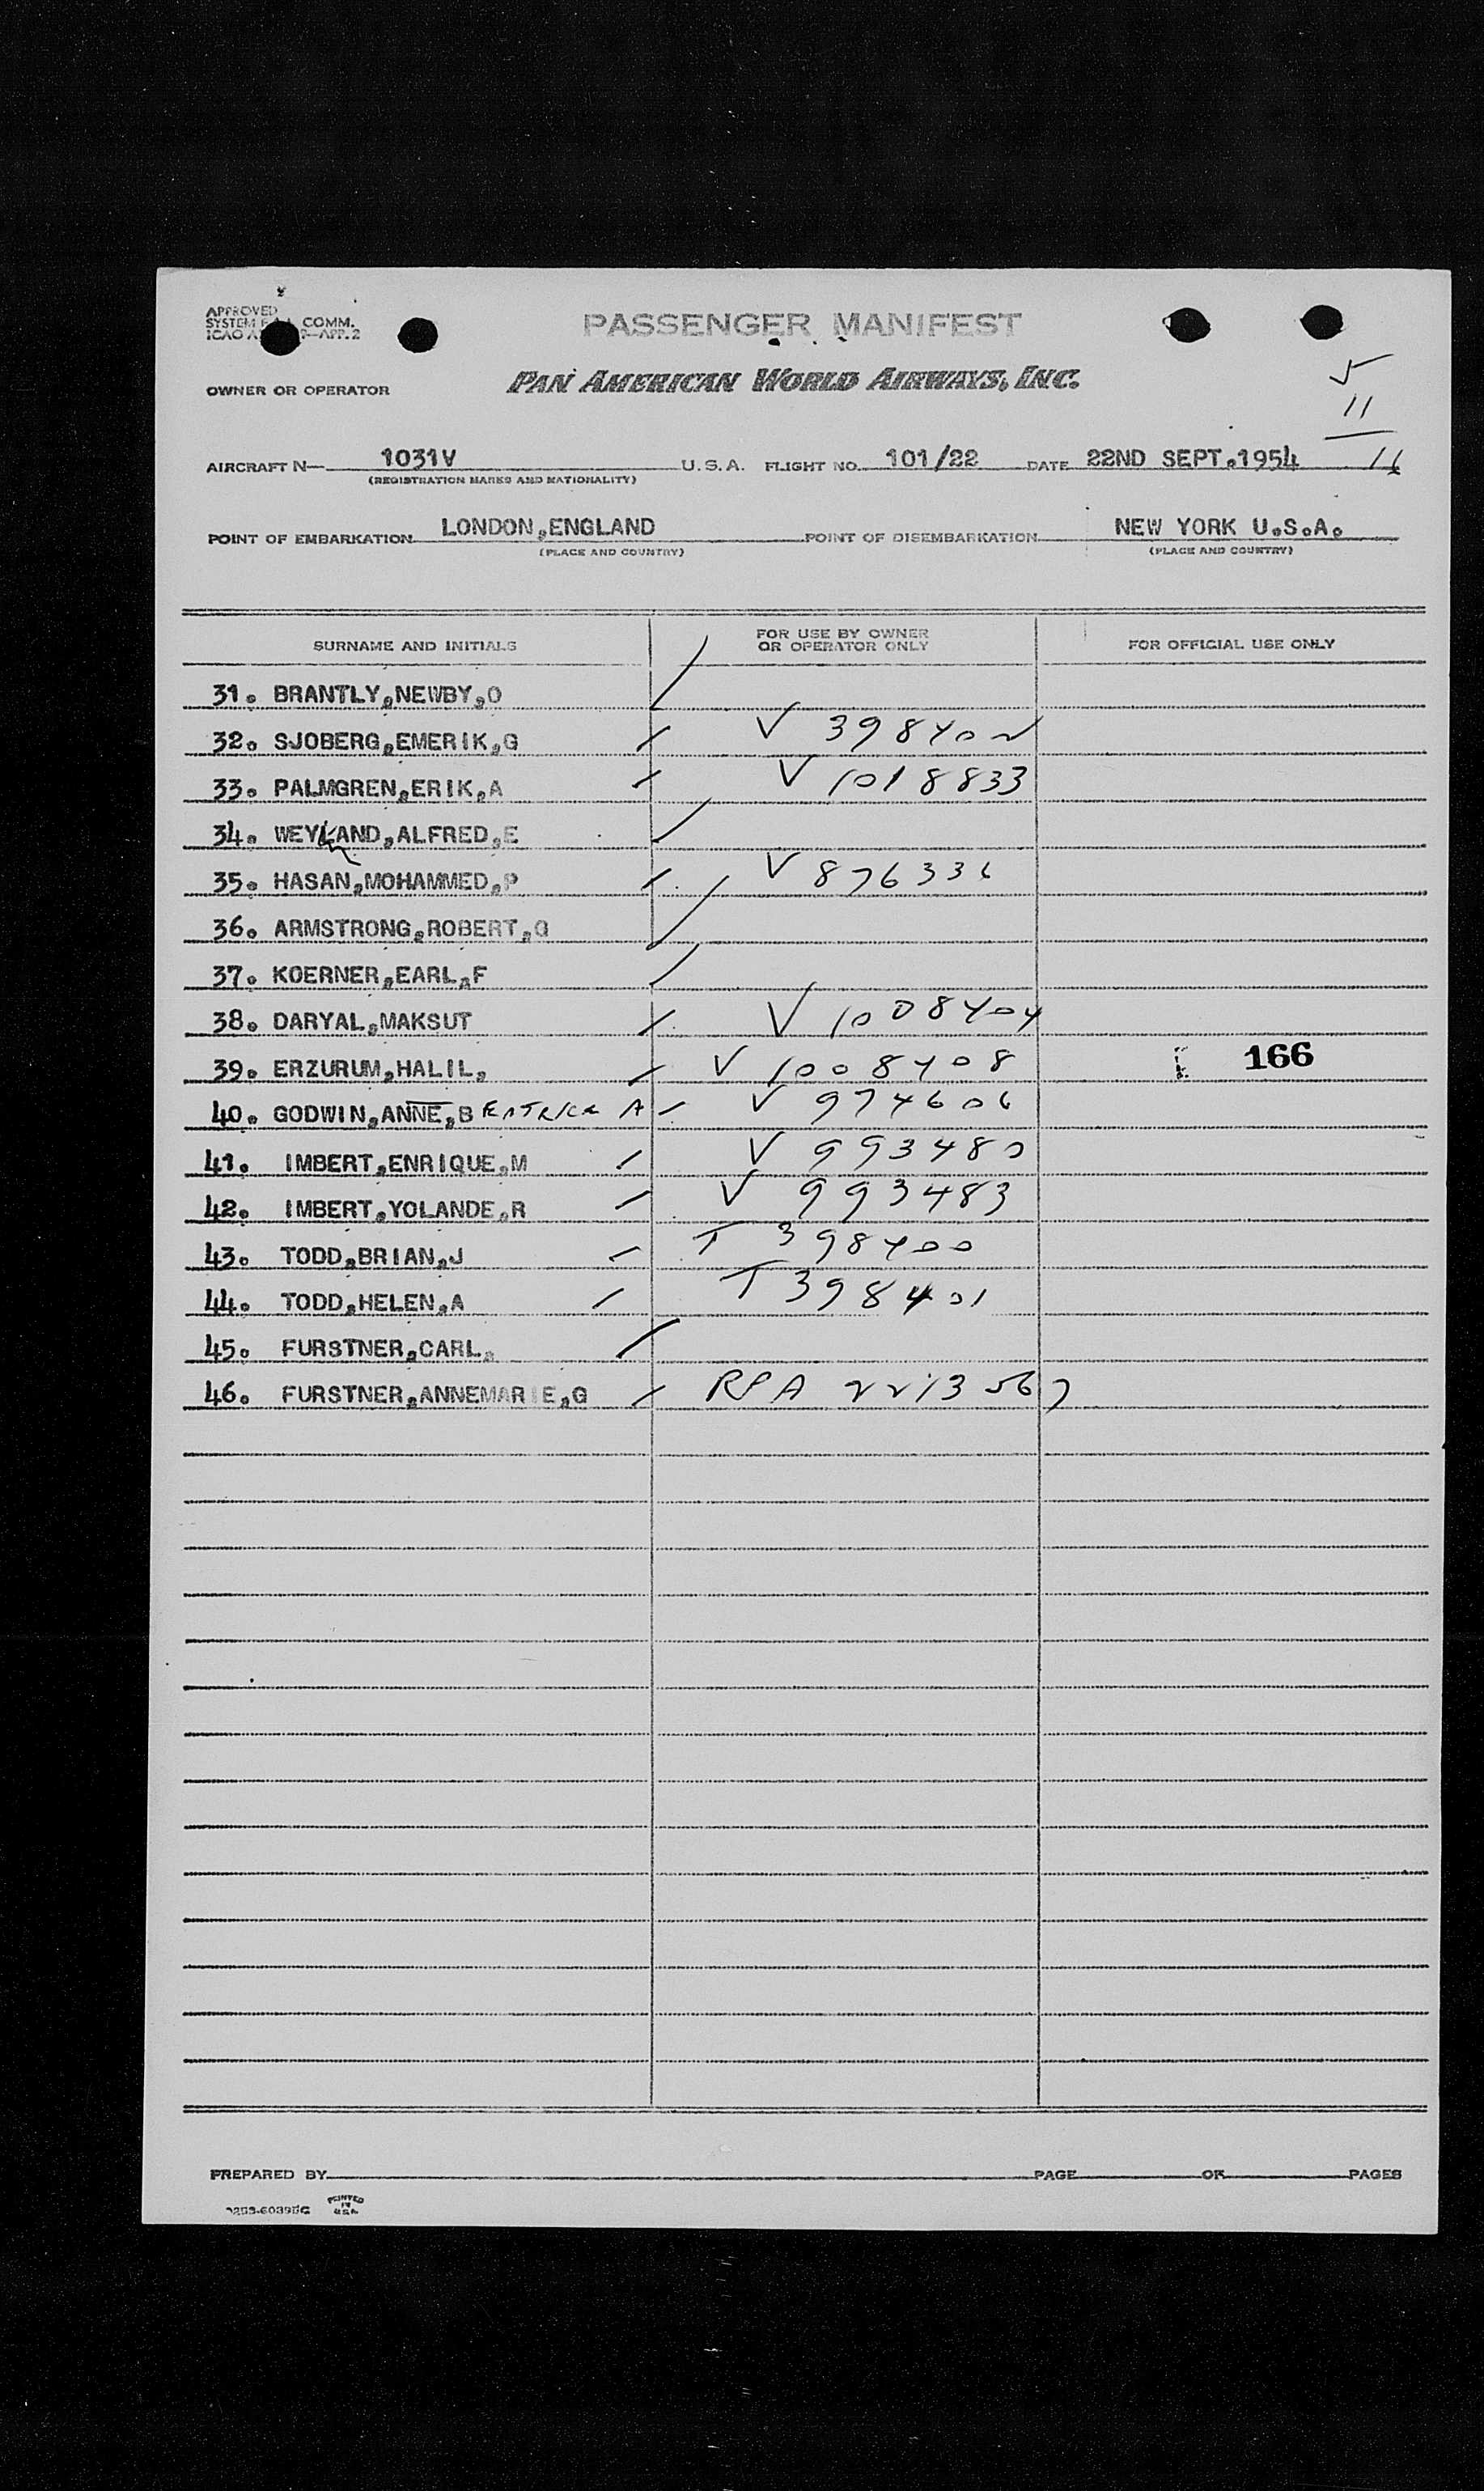 APPROVED
SYSTEM COMM.
ICAO —APP. 2
PASSENGER MANIFEST
OWNER OR OPERATOR PAN AMERICAN WORLD AIRWAYS, INC.
5
11
16
AIRCRAFT N— 1031V U.S.A. FLIGHT NO. 101/22 DATE 22ND SEPT.1954
(REGISTRATION MARKS AND NATIONALITY)
POINT OF EMBARKATION LONDON,ENGLAND POINT OF DISEMBARKATION NEW YORK U.S.A.
(PLACE AND COUNTRY) (PLACE AND COUNTRY)
SURNAME AND INITIALS FOR USE BY OWNER OR OPERATOR ONLY FOR OFFICIAL USE ONLY
31. BRANTLY,NEWBY,O
32. SJOBERG,EMERIK,G V 398402
33. PALMGREN,ERIK,A V 1018833
34. WEYLAND,ALFRED,E
35. HASAN,MOHAMMED,P V 876336
36. ARMSTRONG,ROBERT,G
37. KOERNER,EARL,F
38. DARYAL,MAKSUT V 1008404
39. ERZURUM,HALIL, V 1008408 166
40. GODWIN,ANNE,BEATRICE A V 974606
41. IMBERT,ENRIQUE,M V 993480
42. IMBERT,YOLANDE,R V 993483
43. TODD,BRIAN,J T 398400
44. TODD,HELEN,A T 398401
45. FURSTNER,CARL,
46. FURSTNER,ANNEMARIE,G RPA 2213567
PREPARED BY PAGE OF PAGES
PRINTED
IN
U.S.A.